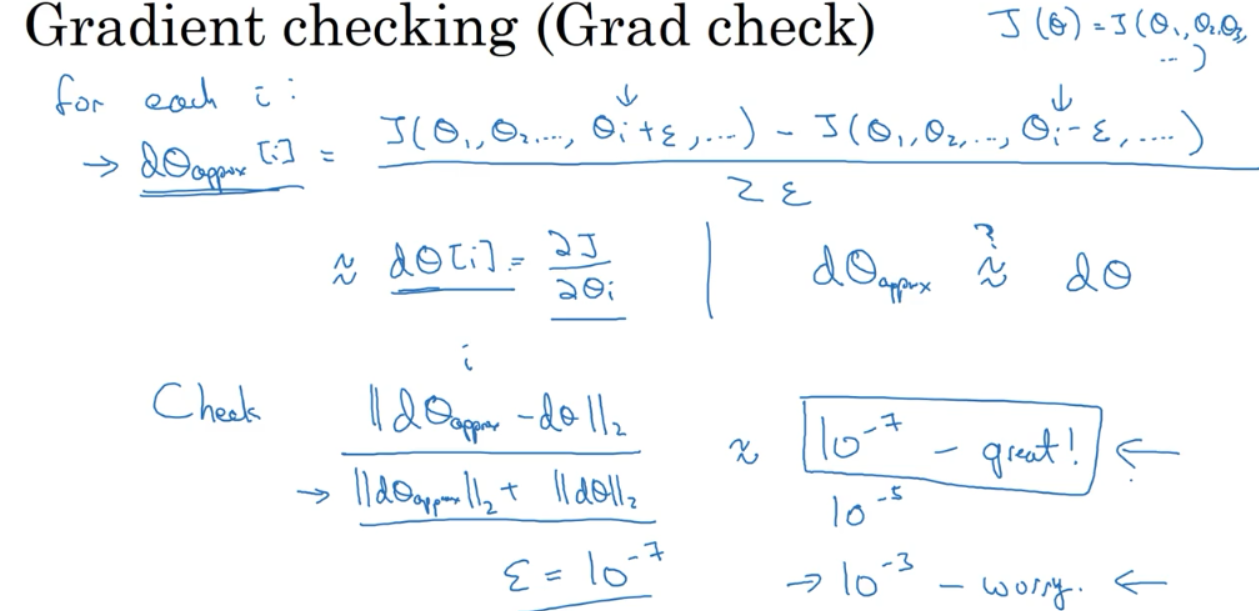 Gradient checking (Grad check)
J(θ) = J(θ₁, θ₂, θ₃, ...)
for each i:
→ dθapprox[i] = J(θ₁, θ₂, ..., θᵢ+ε, ...) - J(θ₁, θ₂, ..., θᵢ-ε, ....)
2ε
≈ dθ[i] = ∂J/∂θᵢ | dθapprox ≈? dθ
i
Check ‖dθapprox - dθ‖₂ ≈ 10⁻⁷ - great! ←
→ ‖dθapprox‖₂ + ‖dθ‖₂ 10⁻⁵
ε = 10⁻⁷ → 10⁻³ - worry. ←